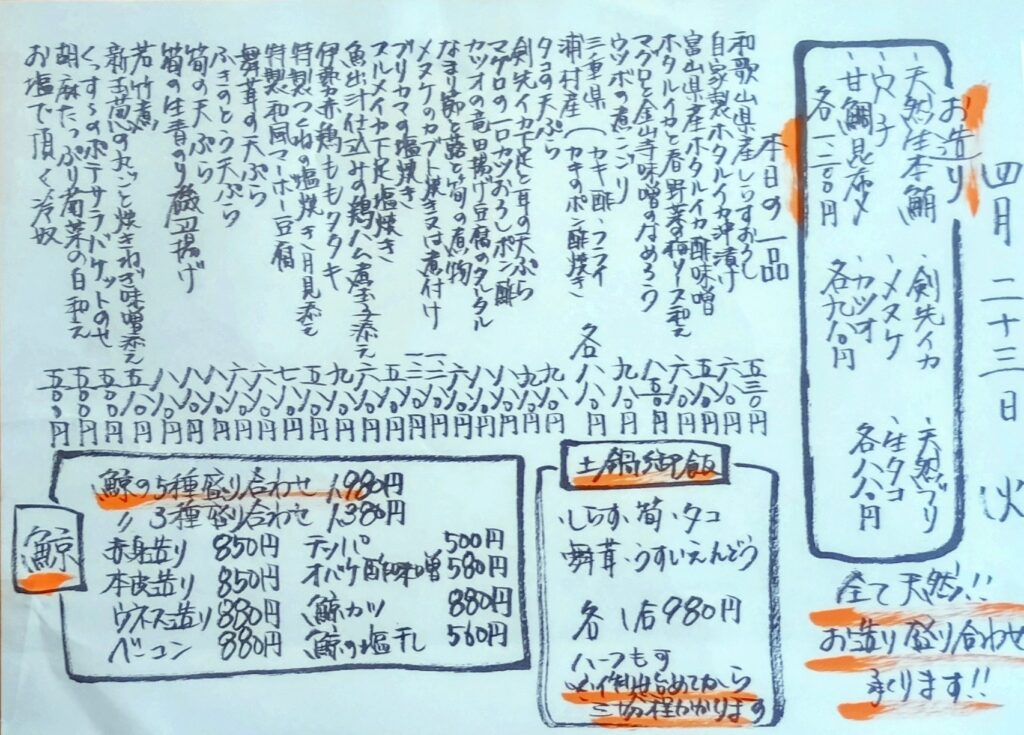 四月二十三日 火
お造り
・天然生本鮪
・穴子
・甘鯛昆布〆
各一、二〇〇円
・剣先イカ
・メヌケ
・カツオ
各九八〇円
・天然ブリ
・生タコ
各八八〇円
全て天然!!
お造り盛り合わせ
承ります!!
本日の一品
和歌山県産しらすおろし 五三〇円
自家製ホタルイカ沖漬け 五八〇円
富山県産ホタルイカ酢味噌 六八〇円
ホタルイカと春野菜の梅ソース和え 八八〇円
マグロと金山寺味噌のなめろう 九八〇円
ウツボの煮こごり
三重県 (カキ酢・フライ
浦村産 (カキのポン酢焼き 各八八〇円
タコの天ぷら 九八〇円
剣先イカ下足と耳の天ぷら 九八〇円
マグロの一口カツおろしポン酢 八八〇円
カツオの竜田揚げ豆腐のタルタル 八八〇円
なまり節と蕗と筍の煮物 六八〇円
メヌケのカブト焼き又は煮付け
ブリカマの塩焼き
スルメイカ下足塩焼き 五八〇円
魚出汁仕込みの鶏ハム煮玉子添え 六八〇円
伊勢赤鶏ももタタキ 九八〇円
特製つくねの塩焼き月見添え 五八〇円
特製和風マーボー豆腐 七八〇円
舞茸の天ぷら 六八〇円
ふきのとう天ぷら 六八〇円
筍の天ぷら 八八〇円
筍の生青のり磯辺揚げ 八八〇円
若竹煮 八八〇円
新玉葱の丸ごと焼きねぎ味噌添え 五八〇円
くんすーのポテサラバケットのせ 五五〇円
胡麻たっぷり菊菜の白和え 五五〇円
お塩で頂く冷奴 五〇〇円
土鍋御飯
・しらす・筍・タコ
・舞茸・うすいえんどう
各1合980円
ハーフも可
三十分程かかります
鯨
鯨の5種盛り合わせ 1,980円
〃 3種盛り合わせ 1,380円
赤身造り 850円
本皮造り 850円
ウネス造り 880円
ベーコン 880円
テッパ 500円
オバケ酢味噌 580円
鯨カツ 880円
鯨の塩干し 560円